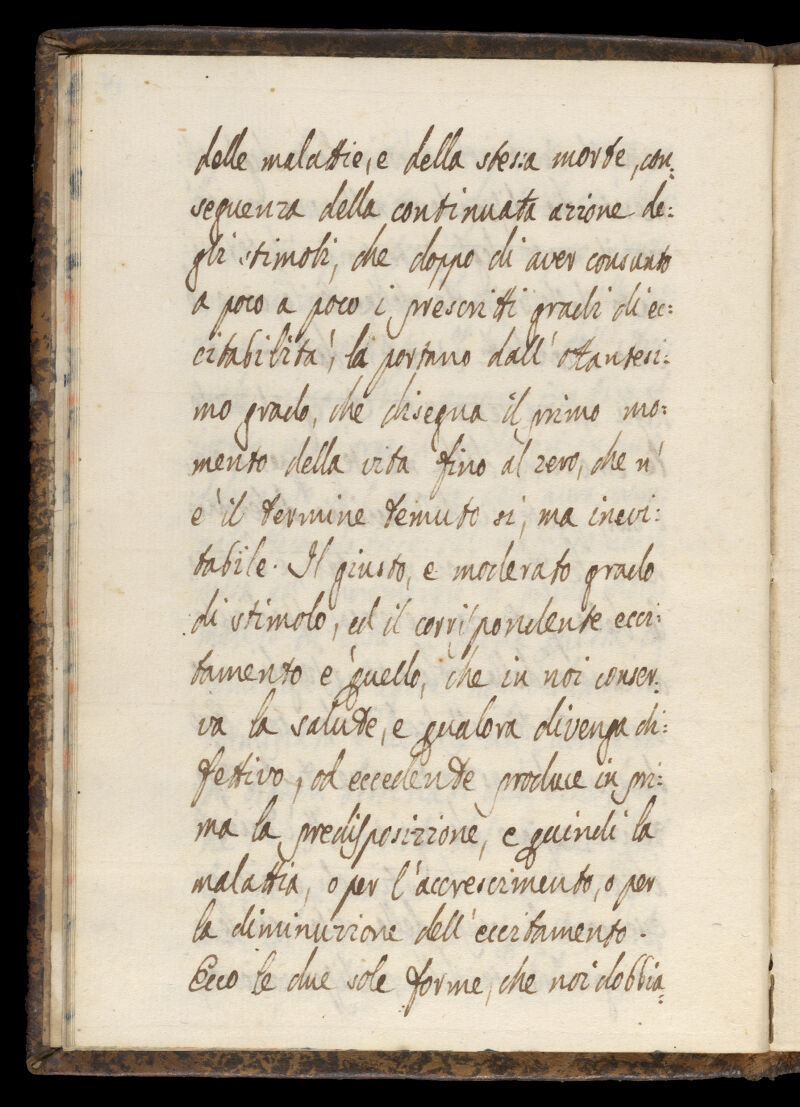 delle malattie, e della stessa morte, con:
seguenza della continuata azione de:
gli stimoli, che doppo di aver consunto
a poco a poco i prescritti gradi di ec:
citabilita', la portano dall' ottantesi:
mo grado, che disegna il primo mo:
mento della vita fino al zero, che n'
e' il termine temuto si, ma inevi:
tabile. Il giusto, e moderato grado
di stimolo, ed il corrispondente ecci:
tamento e' quello, che in noi conser:
va la salute, e qualora divenga di:
fettivo, od eccedente produce in pri:
ma la predisposizione, e quindi la
malattia, o per l'accrescimento, o per
la diminuzione dell' eccitamento.
Ecco le due sole forme, che noi dobbia: